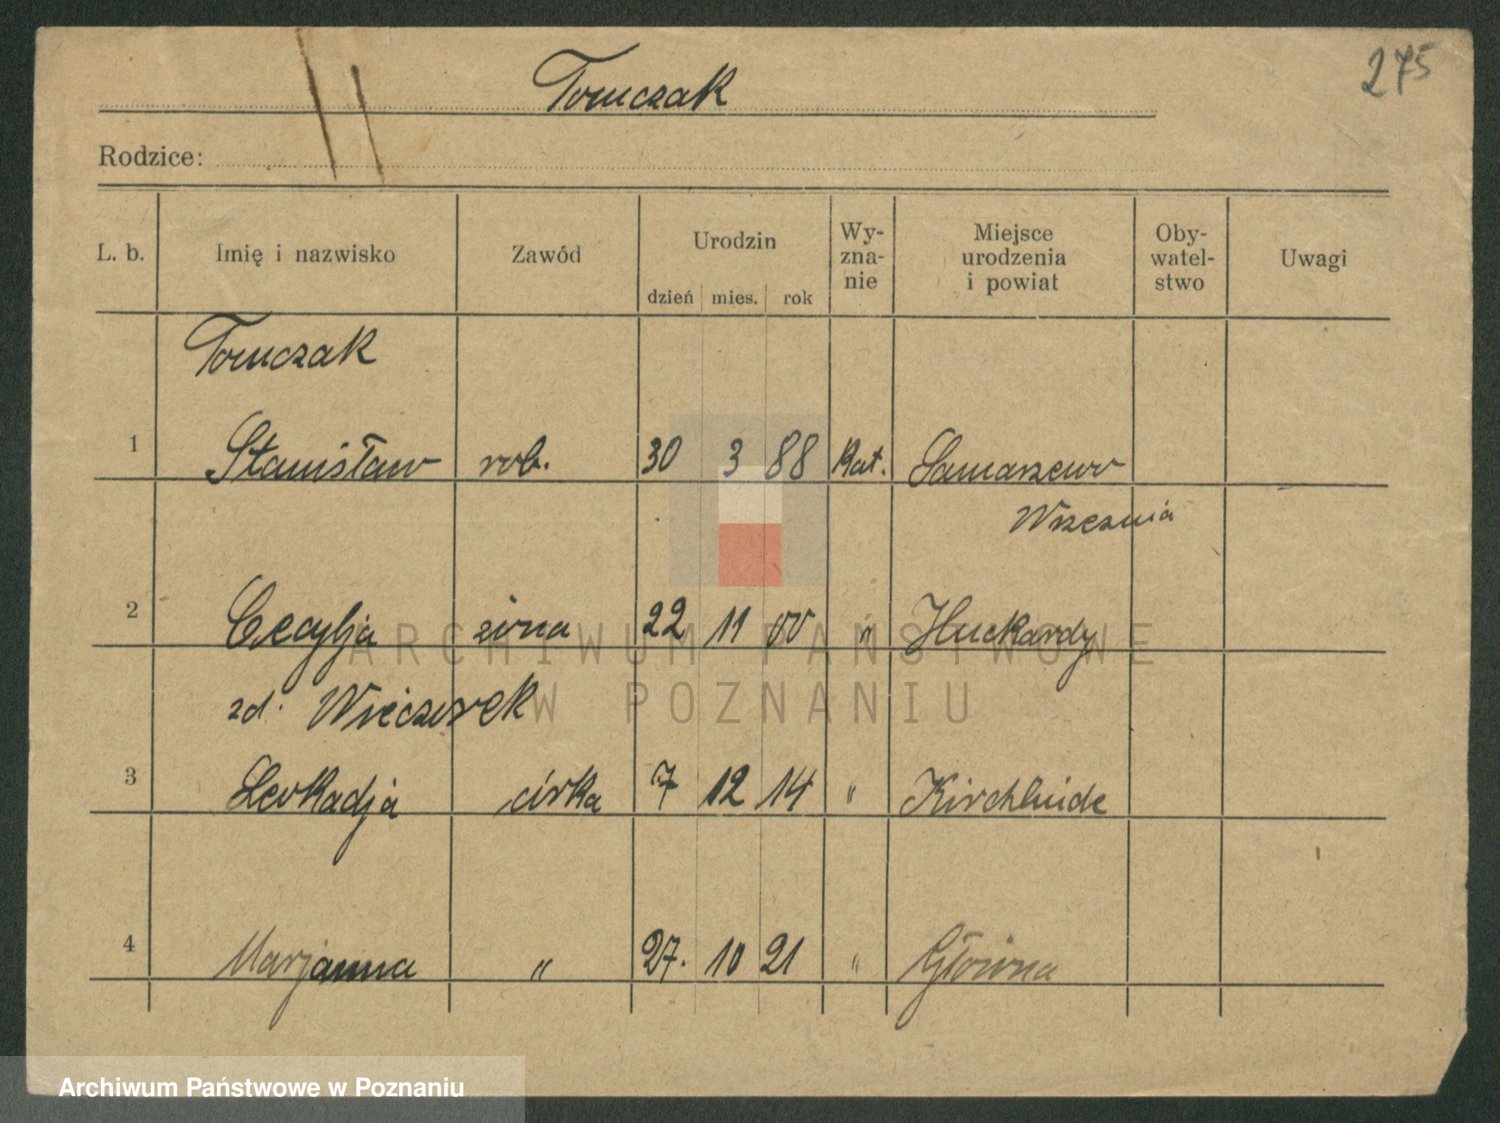 275
Tomczak
Rodzice:
L. b. Imię i nazwisko Zawód Urodzin dzień mies. rok Wy-zna-nie Miejsce urodzenia i powiat Oby-watel-stwo Uwagi
Tomczak
1 Stanisław rob. 30 3 88 Kat. Samarzewo
Września
2 Cecylja żona 22 11 00 " Huckardy
zd. Wieczorek
3 Leokadja córka 7 12 14 " Kirchlinde
4 Marjanna " 27. 10 21 " Główna
ARCHIWUM PAŃSTWOWE
W POZNANIU
Archiwum Państwowe w Poznaniu